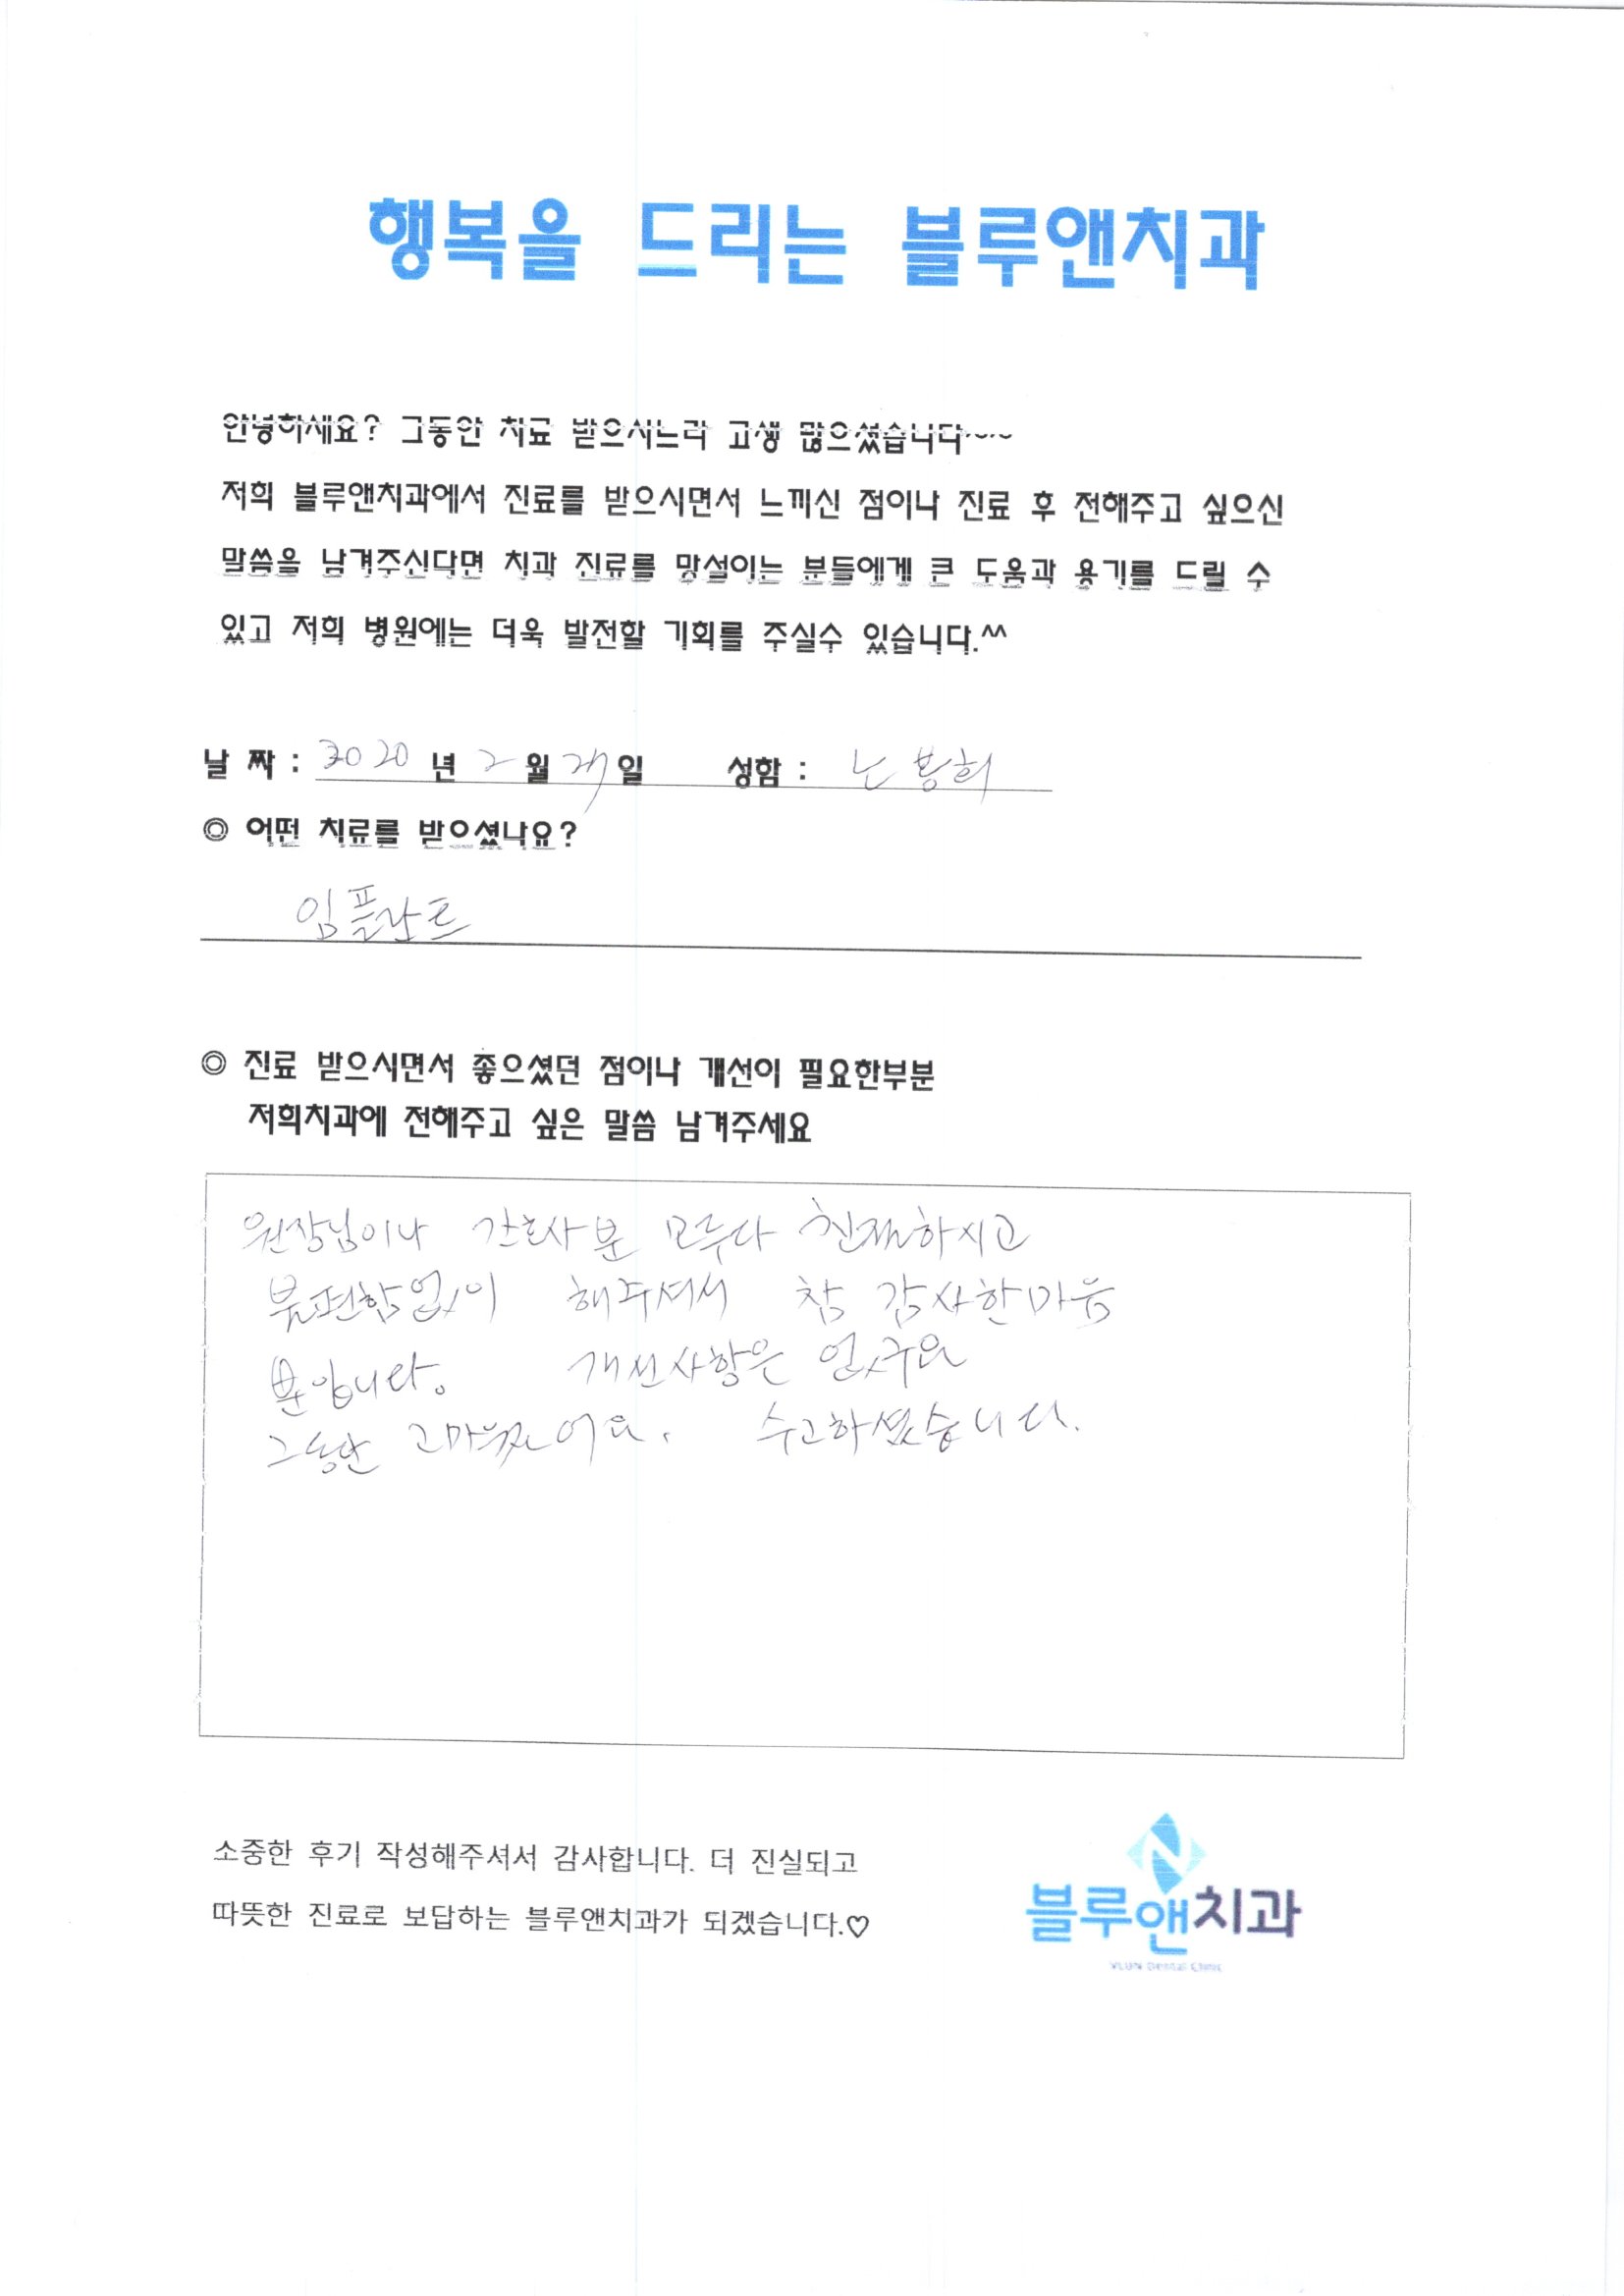 행복을 드리는 블루앤치과
안녕하세요? 그동안 치료 받으시느라 고생 많으셨습니다~~
저희 블루앤치과에서 진료를 받으시면서 느끼신 점이나 진료 후 전해주고 싶으신
말씀을 남겨주신다면 치과 진료를 망설이는 분들에게 큰 도움과 용기를 드릴 수
있고 저희 병원에는 더욱 발전할 기회를 주실수 있습니다.^^
날 짜 : 2020 년 2 월 일 성함 :
◎ 어떤 치료를 받으셨나요?
임플란트
◎ 진료 받으시면서 좋으셨던 점이나 개선이 필요한부분
저희치과에 전해주고 싶은 말씀 남겨주세요
원장님이나 간호사분 모두다 친절하시고
불편함없이 해주셔서 참 감사한마음
뿐입니다. 개선사항은 없구요
그동안 고마웠어요. 수고하셨습니다.
소중한 후기 작성해주셔서 감사합니다. 더 진실되고
따뜻한 진료로 보답하는 블루앤치과가 되겠습니다.♡
블루앤치과
Dental Clinic